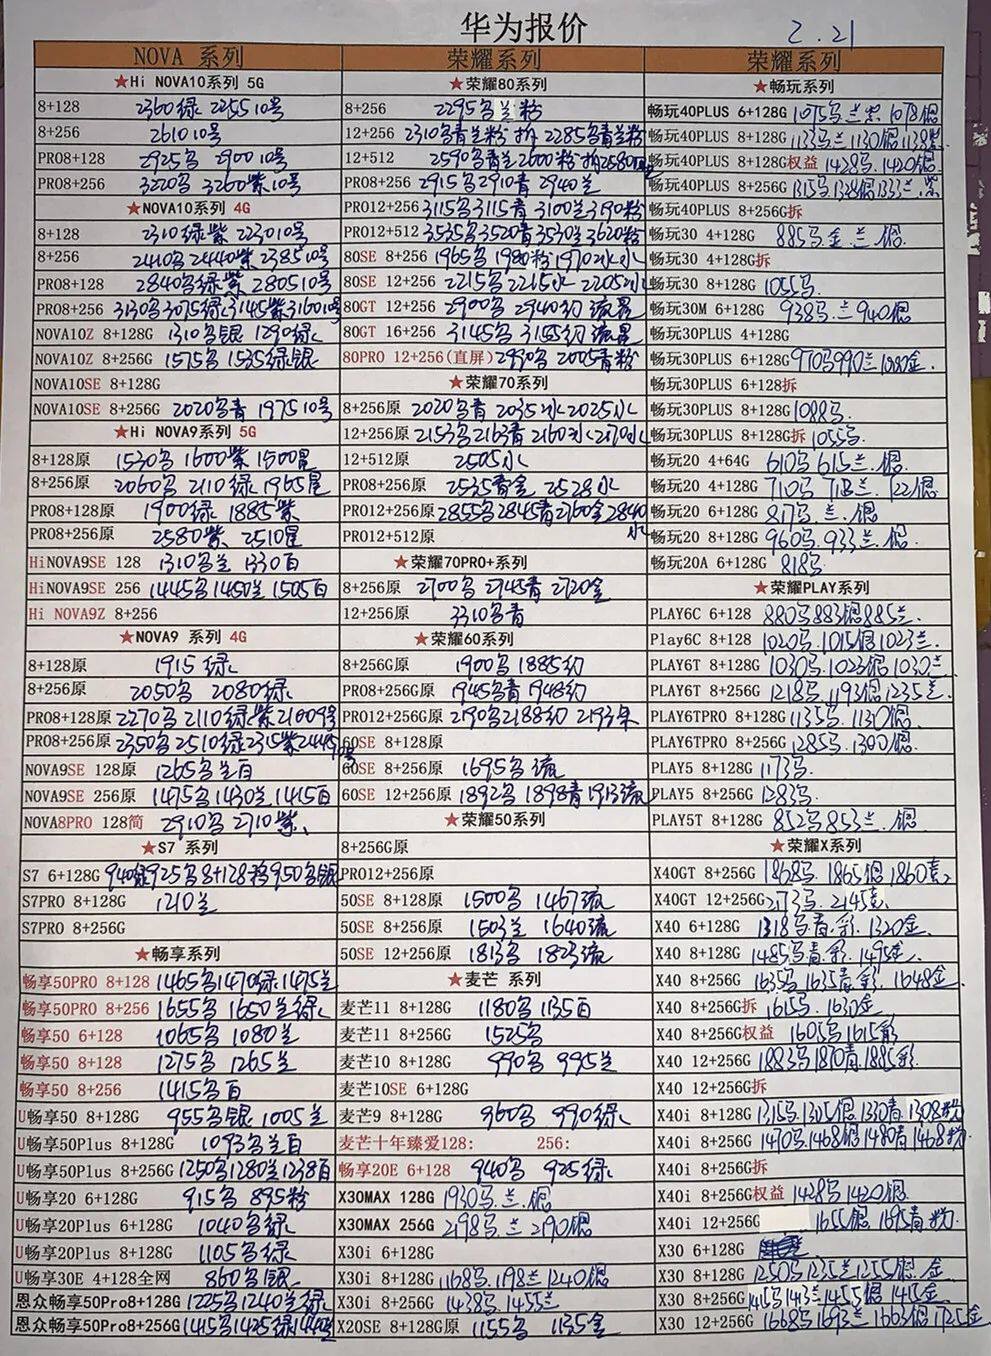 华为报价
2.21
NOVA 系列
★Hi NOVA10系列 5G
8+128 2360绿 2255 10号
8+256 2610 10号
PRO8+128 2925鸟 2900 10号
PRO8+256 3220鸟 3260紫 10号
★NOVA10系列 4G
8+128 2310绿紫 2230 10号
8+256 2410鸟 2440紫 2385 10号
PRO8+128 2840鸟绿紫 2805 10号
PRO8+256 3130鸟 3075绿 3145紫 3160 10号
NOVA10Z 8+128G 1310鸟银 1290绿
NOVA10Z 8+256G 1575鸟 1535绿银
NOVA10SE 8+128G
NOVA10SE 8+256G 2020鸟青 1975 10号
★Hi NOVA9系列 5G
8+128原 1530鸟 1600紫 1500星
8+256原 2060鸟 2110绿 1965星
PRO8+128原 1900绿 1885紫
PRO8+256原 2580紫 2510星
HiNOVA9SE 128 1310鸟兰 1330百
HiNOVA9SE 256 1445鸟 1450兰 1505百
Hi NOVA9Z 8+256
★NOVA9 系列 4G
8+128原 1915绿
8+256原 2050鸟 2080绿
PRO8+128原 2270鸟 2110绿紫 2100 9号
PRO8+256原 2350鸟 2510绿 2315紫
NOVA9SE 128原 1265鸟兰百
NOVA9SE 256原 1475鸟 1430兰 1415百
NOVA8PRO 128简 2910鸟 2710紫
★S7 系列
S7 6+128G 940绿 925鸟 8+128粉 950鸟银
S7PRO 8+128G 1210兰
S7PRO 8+256G
★畅享系列
畅享50PRO 8+128 1465鸟 1470绿 1475兰
畅享50PRO 8+256 1655鸟 1650兰绿
畅享50 6+128 1065鸟 1080兰
畅享50 8+128 1275鸟 1265兰
畅享50 8+256 1415鸟百
U畅享50 8+128G 955鸟银 1005兰
U畅享50Plus 8+128G 1093鸟兰百
U畅享50Plus 8+256G 1250鸟 1280兰 1238百
U畅享20 6+128G 915鸟 895粉
U畅享20Plus 6+128G 1040鸟绿
U畅享20Plus 8+128G 1105鸟绿
U畅享30E 4+128全网 860鸟银
恩众畅享50Pro8+128G 1225鸟 1240兰绿
恩众畅享50Pro8+256G 1415鸟 1425绿
荣耀系列
★荣耀80系列
8+256 2295鸟兰粉
12+256 2310鸟青兰粉 拆 2285鸟青兰粉
12+512 2590鸟青兰 2600粉 拆2580
PRO8+256 2915鸟 2910青 2940兰
PRO12+256 3115鸟 3115青 3100兰 3190粉
PRO12+512 3535鸟 3520青 3530兰 3620粉
80SE 8+256 1965鸟 1980粉 1970冰 水
80SE 12+256 2215鸟 2215冰 2205水
80GT 12+256 2900鸟 2940幻 流星
80GT 16+256 3145鸟 3155幻 流星
80PRO 12+256(直屏) 2990鸟 2005青粉
★荣耀70系列
8+256原 2020鸟青 2035冰 2025水
12+256原 2153鸟 2163青 2160冰 2270水
12+512原 2505水
PRO8+256原 2535青金 2528水
PRO12+256原 2855鸟 2845青 2760金 2840水
PRO12+512原
★荣耀70PRO+系列
8+256原 2700鸟 2745青 2720金
12+256原 3310鸟青
★荣耀60系列
8+256G原 1900鸟 1885幻
PRO8+256G原 1945鸟青 1948幻
PRO12+256G原 2190鸟 2188幻 2193朱
60SE 8+128原
60SE 8+256原 1695鸟流
60SE 12+256原 1892鸟 1898青 1913流
★荣耀50系列
8+256G原
PRO12+256原
50SE 8+128原 1500鸟 1467流
50SE 8+256原 1503兰 1640流
50SE 12+256原 1813鸟 1823流
★麦芒 系列
麦芒11 8+128G 1180鸟 1135百
麦芒11 8+256G 1525鸟
麦芒10 8+128G 990鸟 995兰
麦芒10SE 6+128G
麦芒9 8+128G 960鸟 990绿
麦芒十年臻爱128: 256:
畅享20E 6+128 940鸟 925绿
X30MAX 128G 1930鸟.兰.银
X30MAX 256G 2198鸟.兰 2190银
X30i 6+128G
X30i 8+128G 1168鸟.1198兰 1240银
X30i 8+256G 1438鸟.1455兰
X20SE 8+128G原 1155鸟 1135金
荣耀系列
★畅玩系列
畅玩40PLUS 6+128G 1075鸟兰紫 1078银
畅玩40PLUS 8+128G 1133鸟兰 1130银 1138紫
畅玩40PLUS 8+128G权益 1428鸟.1420银
畅玩40PLUS 8+256G 1315鸟 1328银 1333兰.紫
畅玩40PLUS 8+256G拆
畅玩30 4+128G 885鸟.金.兰.银
畅玩30 4+128G拆
畅玩30 8+128G 1055鸟
畅玩30M 6+128G 938鸟.兰 940银
畅玩30PLUS 4+128G
畅玩30PLUS 6+128G 970鸟 990兰 1080金
畅玩30PLUS 6+128拆
畅玩30PLUS 8+128G 1088鸟
畅玩30PLUS 8+128G拆 1055鸟
畅玩20 4+64G 610鸟 615兰.银
畅玩20 4+128G 710鸟 718兰.722银
畅玩20 6+128G 817鸟.兰.银
畅玩20 8+128G 960鸟.933兰.银
畅玩20A 6+128G 818鸟
★荣耀PLAY系列
PLAY6C 6+128 880鸟 883银 885兰
Play6C 8+128 1020鸟.1015银 1023兰
PLAY6T 8+128G 1030鸟.1023银 1030兰
PLAY6T 8+256G 1218鸟.1193银 1235兰
PLAY6TPRO 8+128G 1135鸟.1130银
PLAY6TPRO 8+256G 1285鸟.1300银
PLAY5 8+128G 1173鸟
PLAY5 8+256G 1283鸟
PLAY5T 8+128G 852鸟 853兰.银
★荣耀X系列
X40GT 8+256G 1868鸟.1865银 1860竞
X40GT 12+256G 2173鸟.2145竞
X40 6+128G 1318鸟.青.彩.1320金
X40 8+128G 1485鸟.青.彩.1495金
X40 8+256G 1635鸟.1635青.彩.1648金
X40 8+256G拆 1615鸟.1630金
X40 8+256G权益 1605鸟 1615彩
X40 12+256G 1883鸟 1870青 1885彩
X40 12+256G拆
X40i 8+128G 1315鸟 1305银 1330青 1308粉
X40i 8+256G 1470鸟 1468银 1480青 1468粉
X40i 8+256G拆
X40i 8+256G权益 1428鸟 1420银
X40i 12+256G 1655银 1695青.粉
X30 6+128G
X30 8+128G 1250鸟 1235兰 1255银.金
X30 8+256G 1415鸟 1443兰 1455银 1415金
X30 12+256G 1668鸟 1693兰 1663银 1725金